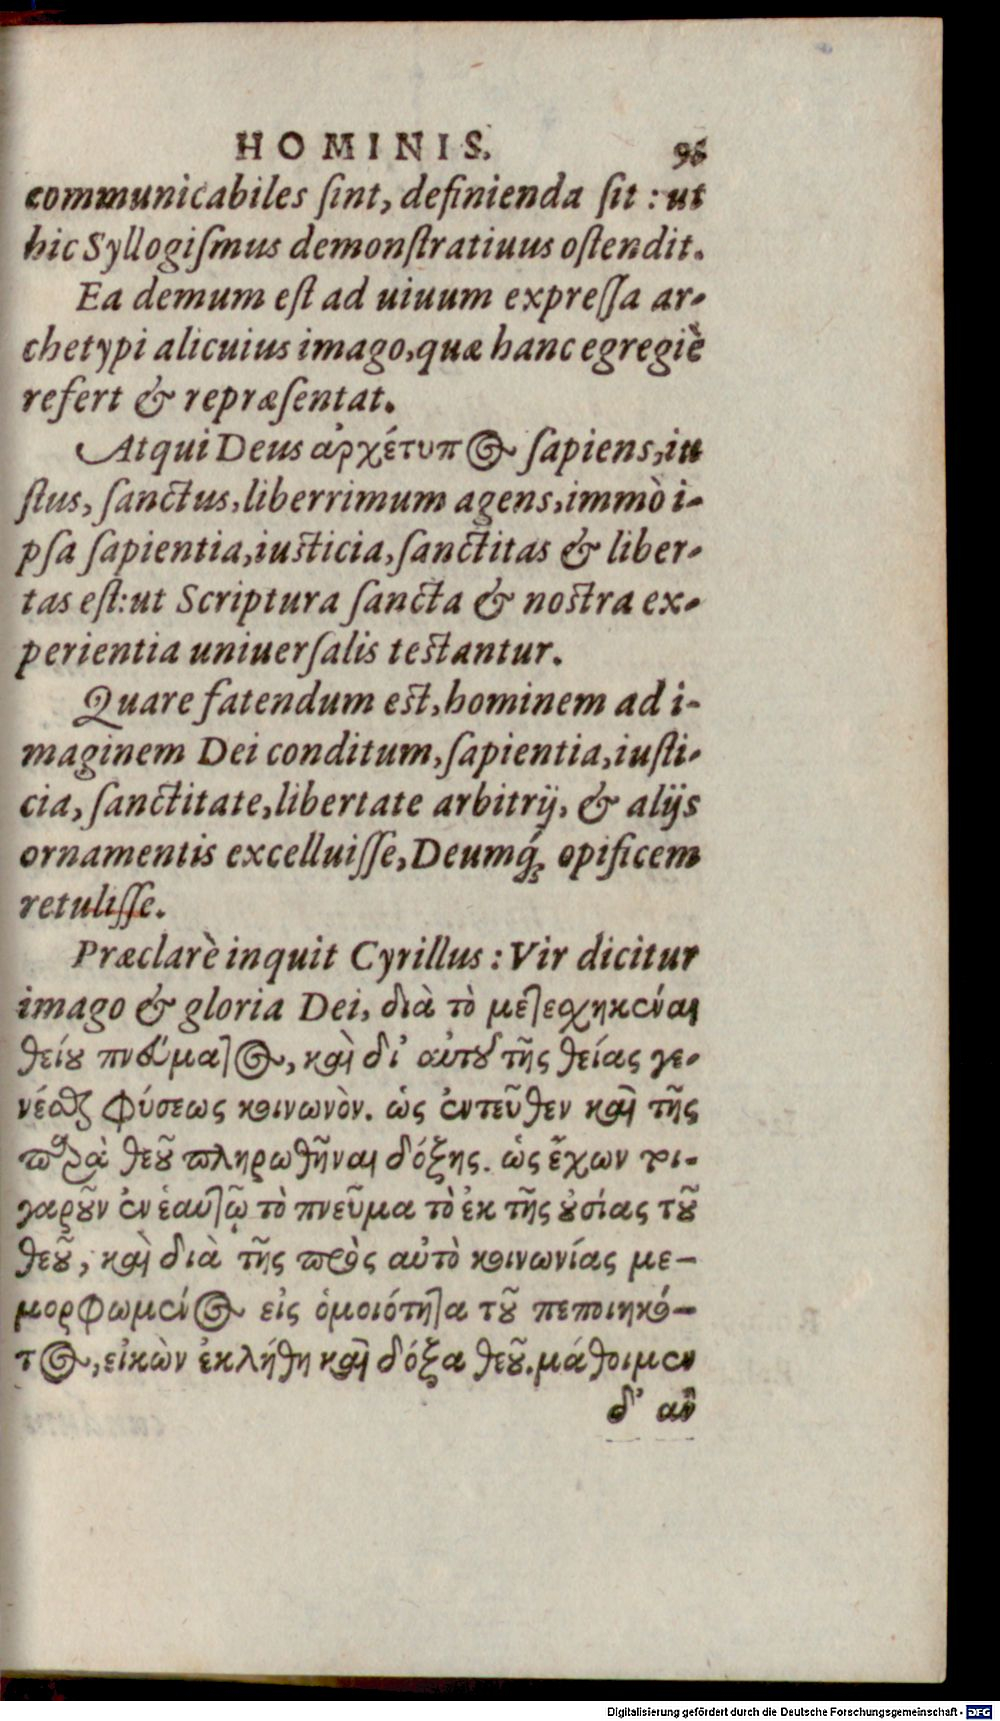 HOMINIS. 96
communicabiles ſint, definienda ſit : ut
hic Syllogiſmus demonſtratiuus oſtendit.
Ea demum eſt ad uiuum expreſſa ar-
chetypi alicuius imago, quæ hanc egregiè
refert & repræſentat.
Atqui Deus ἀρχέτυπος ſapiens, iu
ſtus, ſanctus, liberrimum agens, immò i-
pſa ſapientia, iuſticia, ſanctitas & liber-
tas eſt: ut Scriptura ſancta & noſtra ex-
perientia uniuerſalis teſtantur.
Quare fatendum eſt, hominem ad i-
maginem Dei conditum, ſapientia, iuſti-
cia, ſanctitate, libertate arbitrij, & alijs
ornamentis excelluiſſe, Deumq́; opificem
retuliſſe.
Præclarè inquit Cyrillus : Vir dicitur
imago & gloria Dei, διὰ τὸ μετεσχηκέναι
θείου πνεύματος, καὶ δι' αὐτοῦ τῆς θείας γε-
νέσθαι φύσεως κοινωνὸν. ὡς ἐντεῦθεν καὶ τῆς
παρὰ θεοῦ πληρωθῆναι δόξης. ὡς ἔχων τοι-
γαροῦν ἐν ἑαυτῷ τὸ πνεῦμα τὸ ἐκ τῆς οὐσίας τοῦ
θεοῦ, καὶ διὰ τῆς πρὸς αὐτὸ κοινωνίας με-
μορφωμένος εἰς ὁμοιότητα τοῦ πεποιηκό-
τος, εἰκὼν ἐκλήθη καὶ δόξα θεοῦ. μάθοιμεν
δ' ἂν
Digitalisierung gefördert durch die Deutsche Forschungsgemeinschaft - DFG